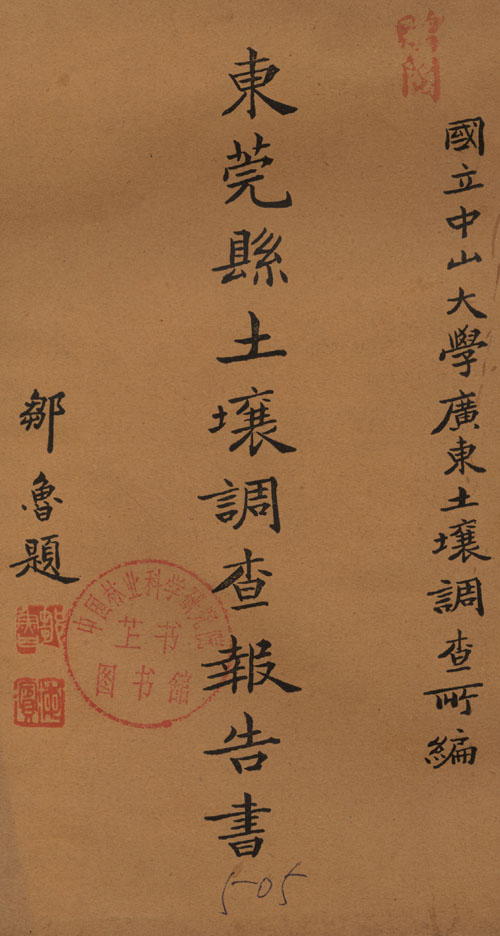 國立中山大學廣東土壤調查所編
東莞縣土壤調查報告書
鄒魯題
鄒魯
海濱
中国林业科学研究院
图书馆
5-05